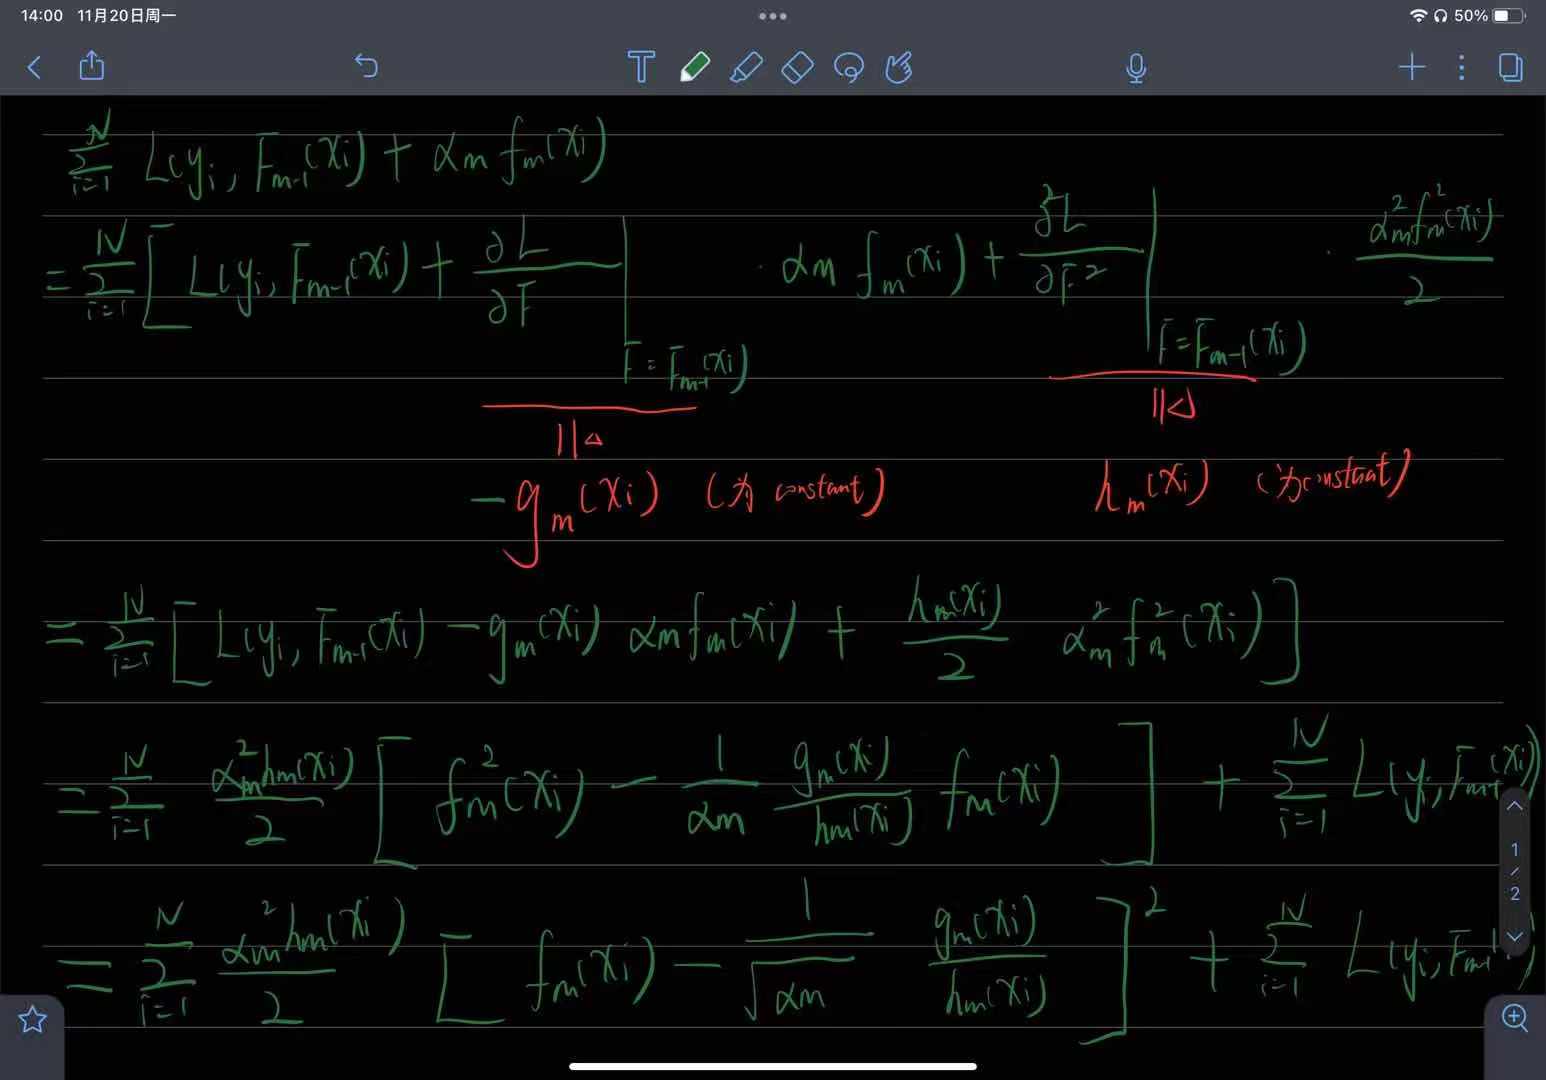 14:00 11月20日周一
50%
∑_{i=1}^{N} L(y_i, F_{m-1}(x_i) + α_m f_m(x_i))
= ∑_{i=1}^{N} [ L(y_i, F_{m-1}(x_i) + ∂L/∂F |_{F=F_{m-1}(x_i)} · α_m f_m(x_i) ) + ∂²L/∂F² |_{F=F_{m-1}(x_i)} · α_m² f_m²(x_i)/2
-g_m(x_i) (为 constant) h_m(x_i) (为 constant)
= ∑_{i=1}^{N} [ L(y_i, F_{m-1}(x_i) - g_m(x_i) α_m f_m(x_i) + h_m(x_i)/2 α_m² f_m²(x_i) ]
= ∑_{i=1}^{N} α_m² h_m(x_i)/2 [ f_m²(x_i) - 1/α_m g_m(x_i)/h_m(x_i) f_m(x_i) ] + ∑_{i=1}^{N} L(y_i, F_{m-1}(x_i))
= ∑_{i=1}^{N} α_m² h_m(x_i)/2 [ f_m(x_i) - 1/√α_m g_m(x_i)/h_m(x_i) ]² + ∑_{i=1}^{N} L(y_i, F_{m-1}
1
/
2